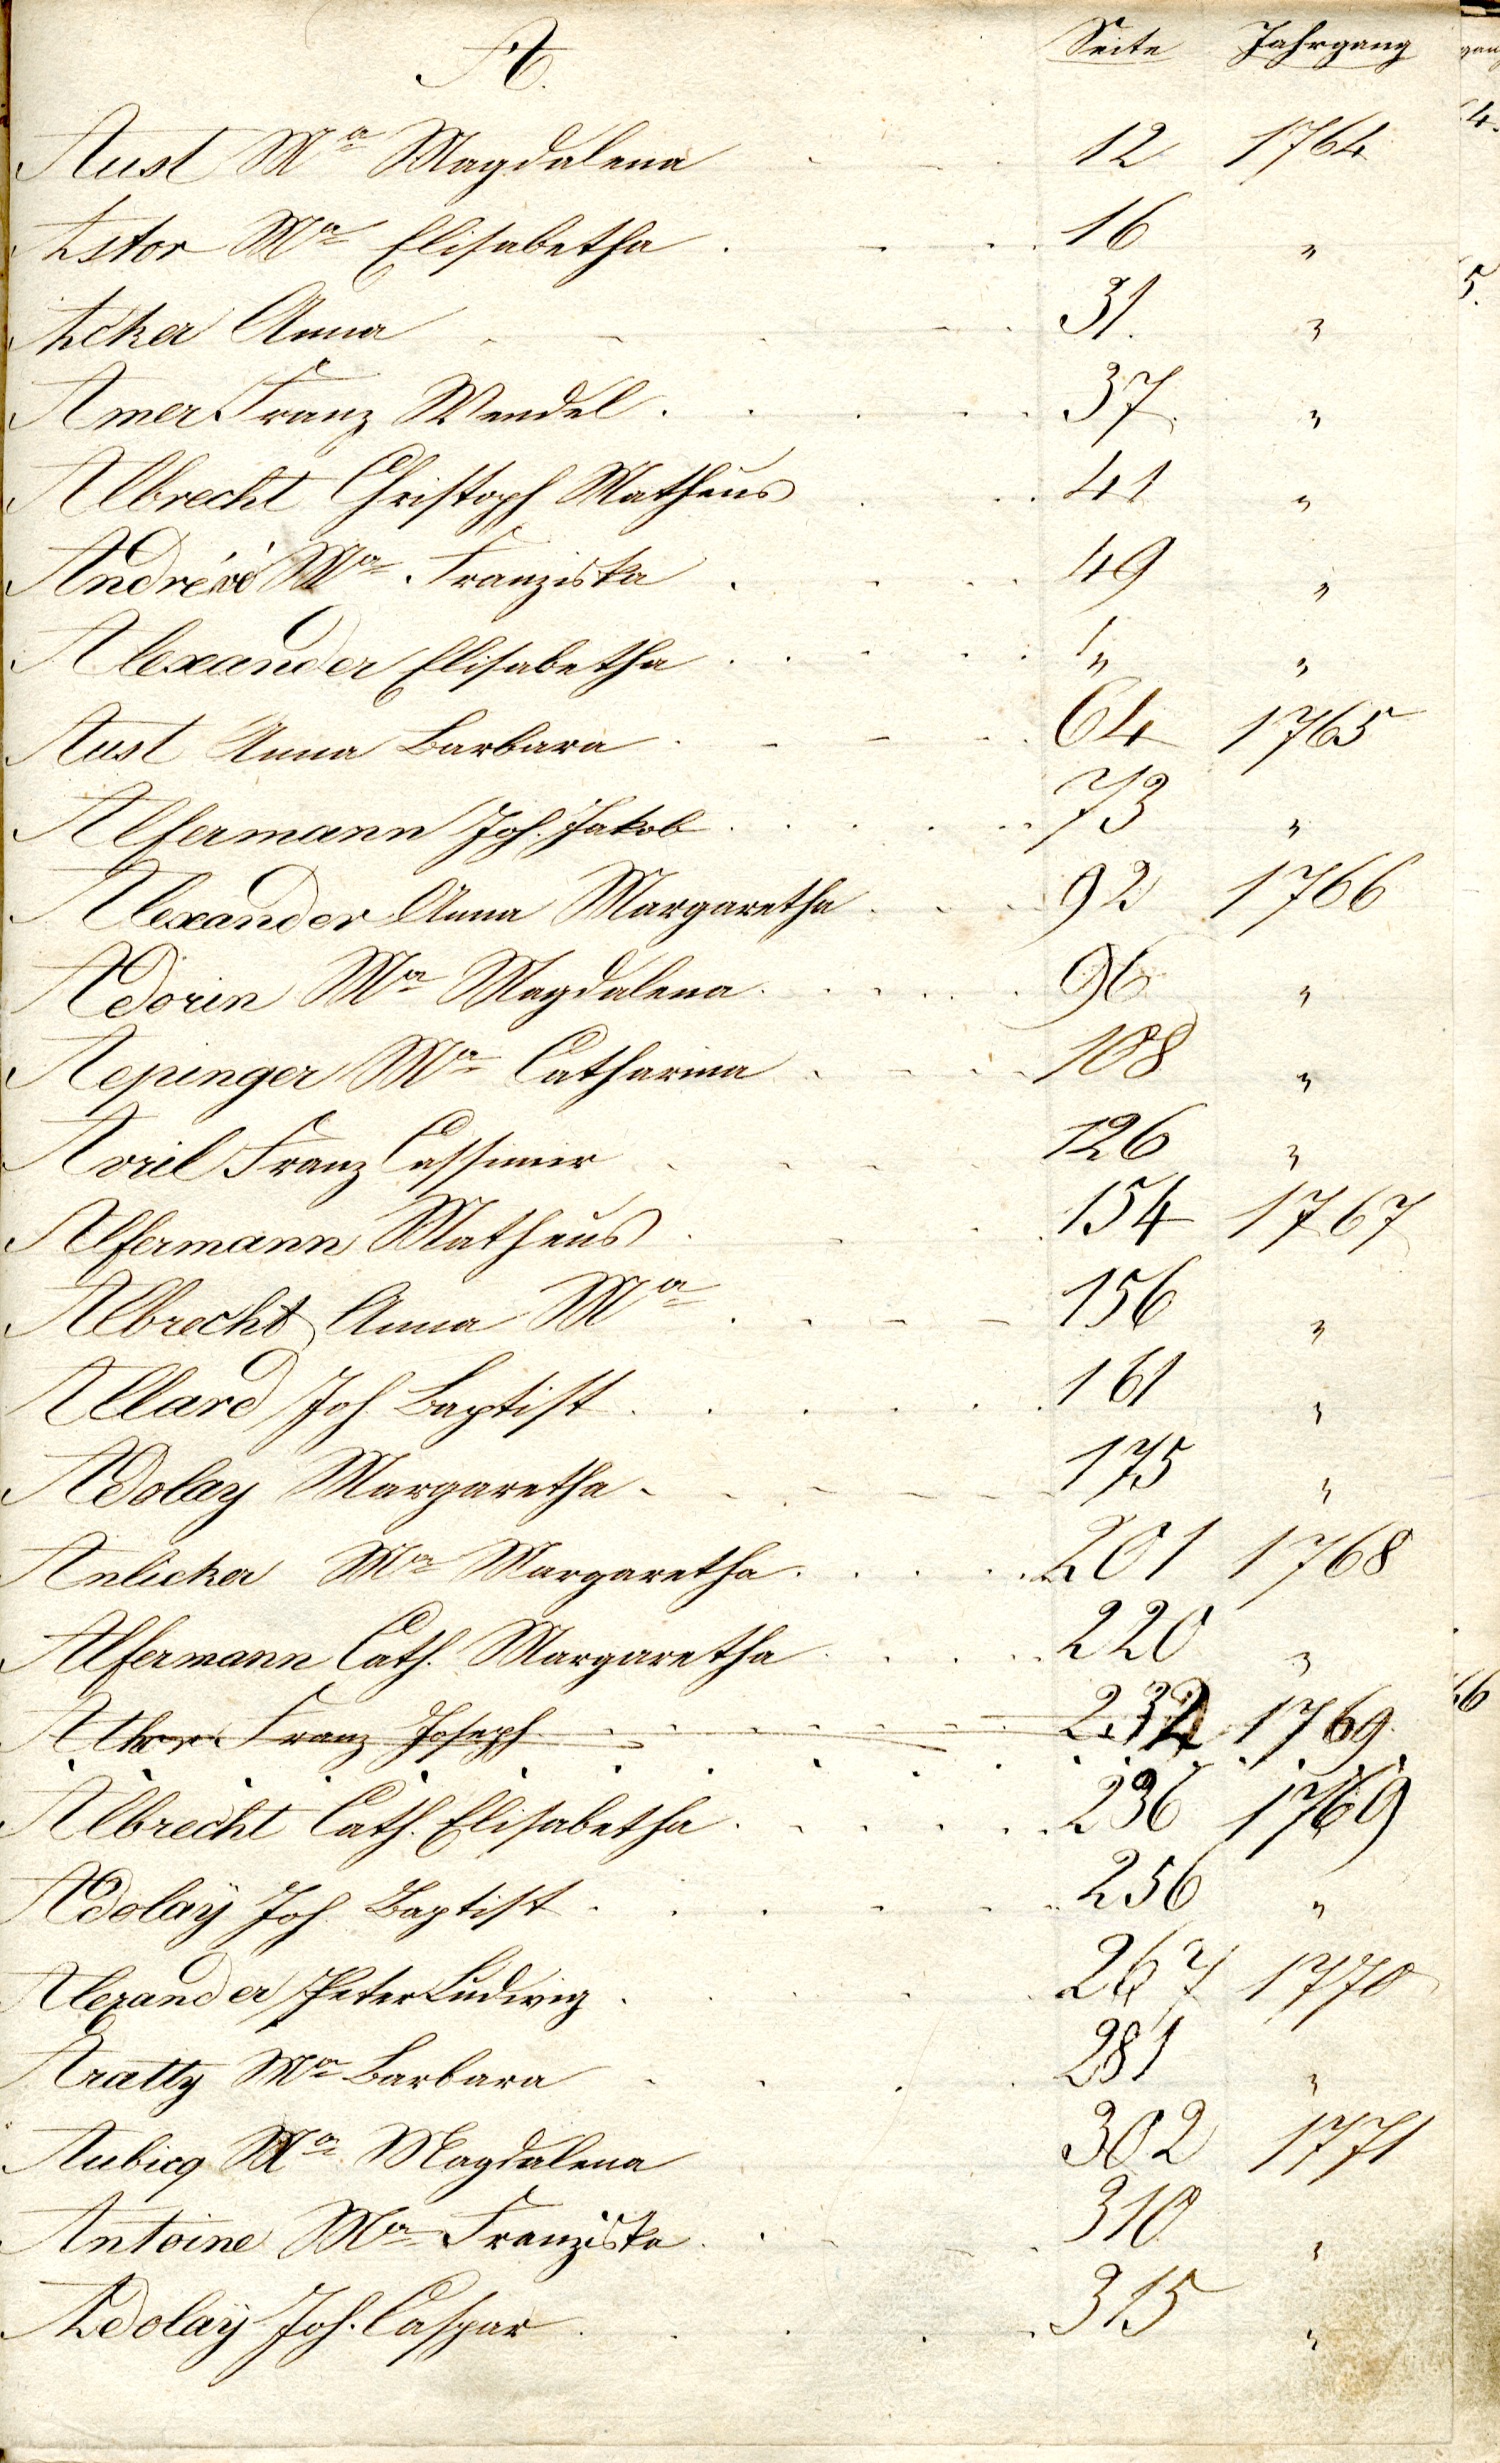 A. Seite Jahrgang
Aust Mª Magdalena - - - 12 1764
Astor Mª Elisabetha . - - . 16 "
Acker Anna - - - - . 31. "
Amer Franz Wendel . . . . . 37. "
Albrecht Christoph Matheus . . 41 "
Mª Franziska . - - . 49 "
Alexander Elisabetha . . . . . " "
Aust Anna Barbara . - - - . 64 1765
Alfermann Joh. Jakob . . . . . 73 "
Alexander Anna Margaretha . . . 92 1766
Adorin Mª Magdalena . . . . . 96 "
Aepinger Mª Catharina . - - . 108 "
Avril Franz Cassimir - - - - 126 "
Alfermann Matheus . - - . . 154 1767
Albrecht Anna Mª . . - - 156 "
Allard Joh. Baptist . . . . . . 161 "
Adolay Margaretha . - - - - 175 "
Anlicker Mª Margaretha . . . . . 201 1768
Alfermann Cath. Margaretha . . . . 220 "
Franz Joseph - - - - - 232 1769.
Albrecht Cath. Elisabetha . . . . . 236 1769
Adolaÿ Joh. Baptist . . . . . 256 "
Alexander Peter Ludwig . . . . 267 1770
Aratty Mª Barbara - . . . 281 "
Aubicq Mª Magdalena 302 1771
Antoine Mª Franziska . . - - . 310 "
Adolaÿ Joh. Caspar . . . . 315 "